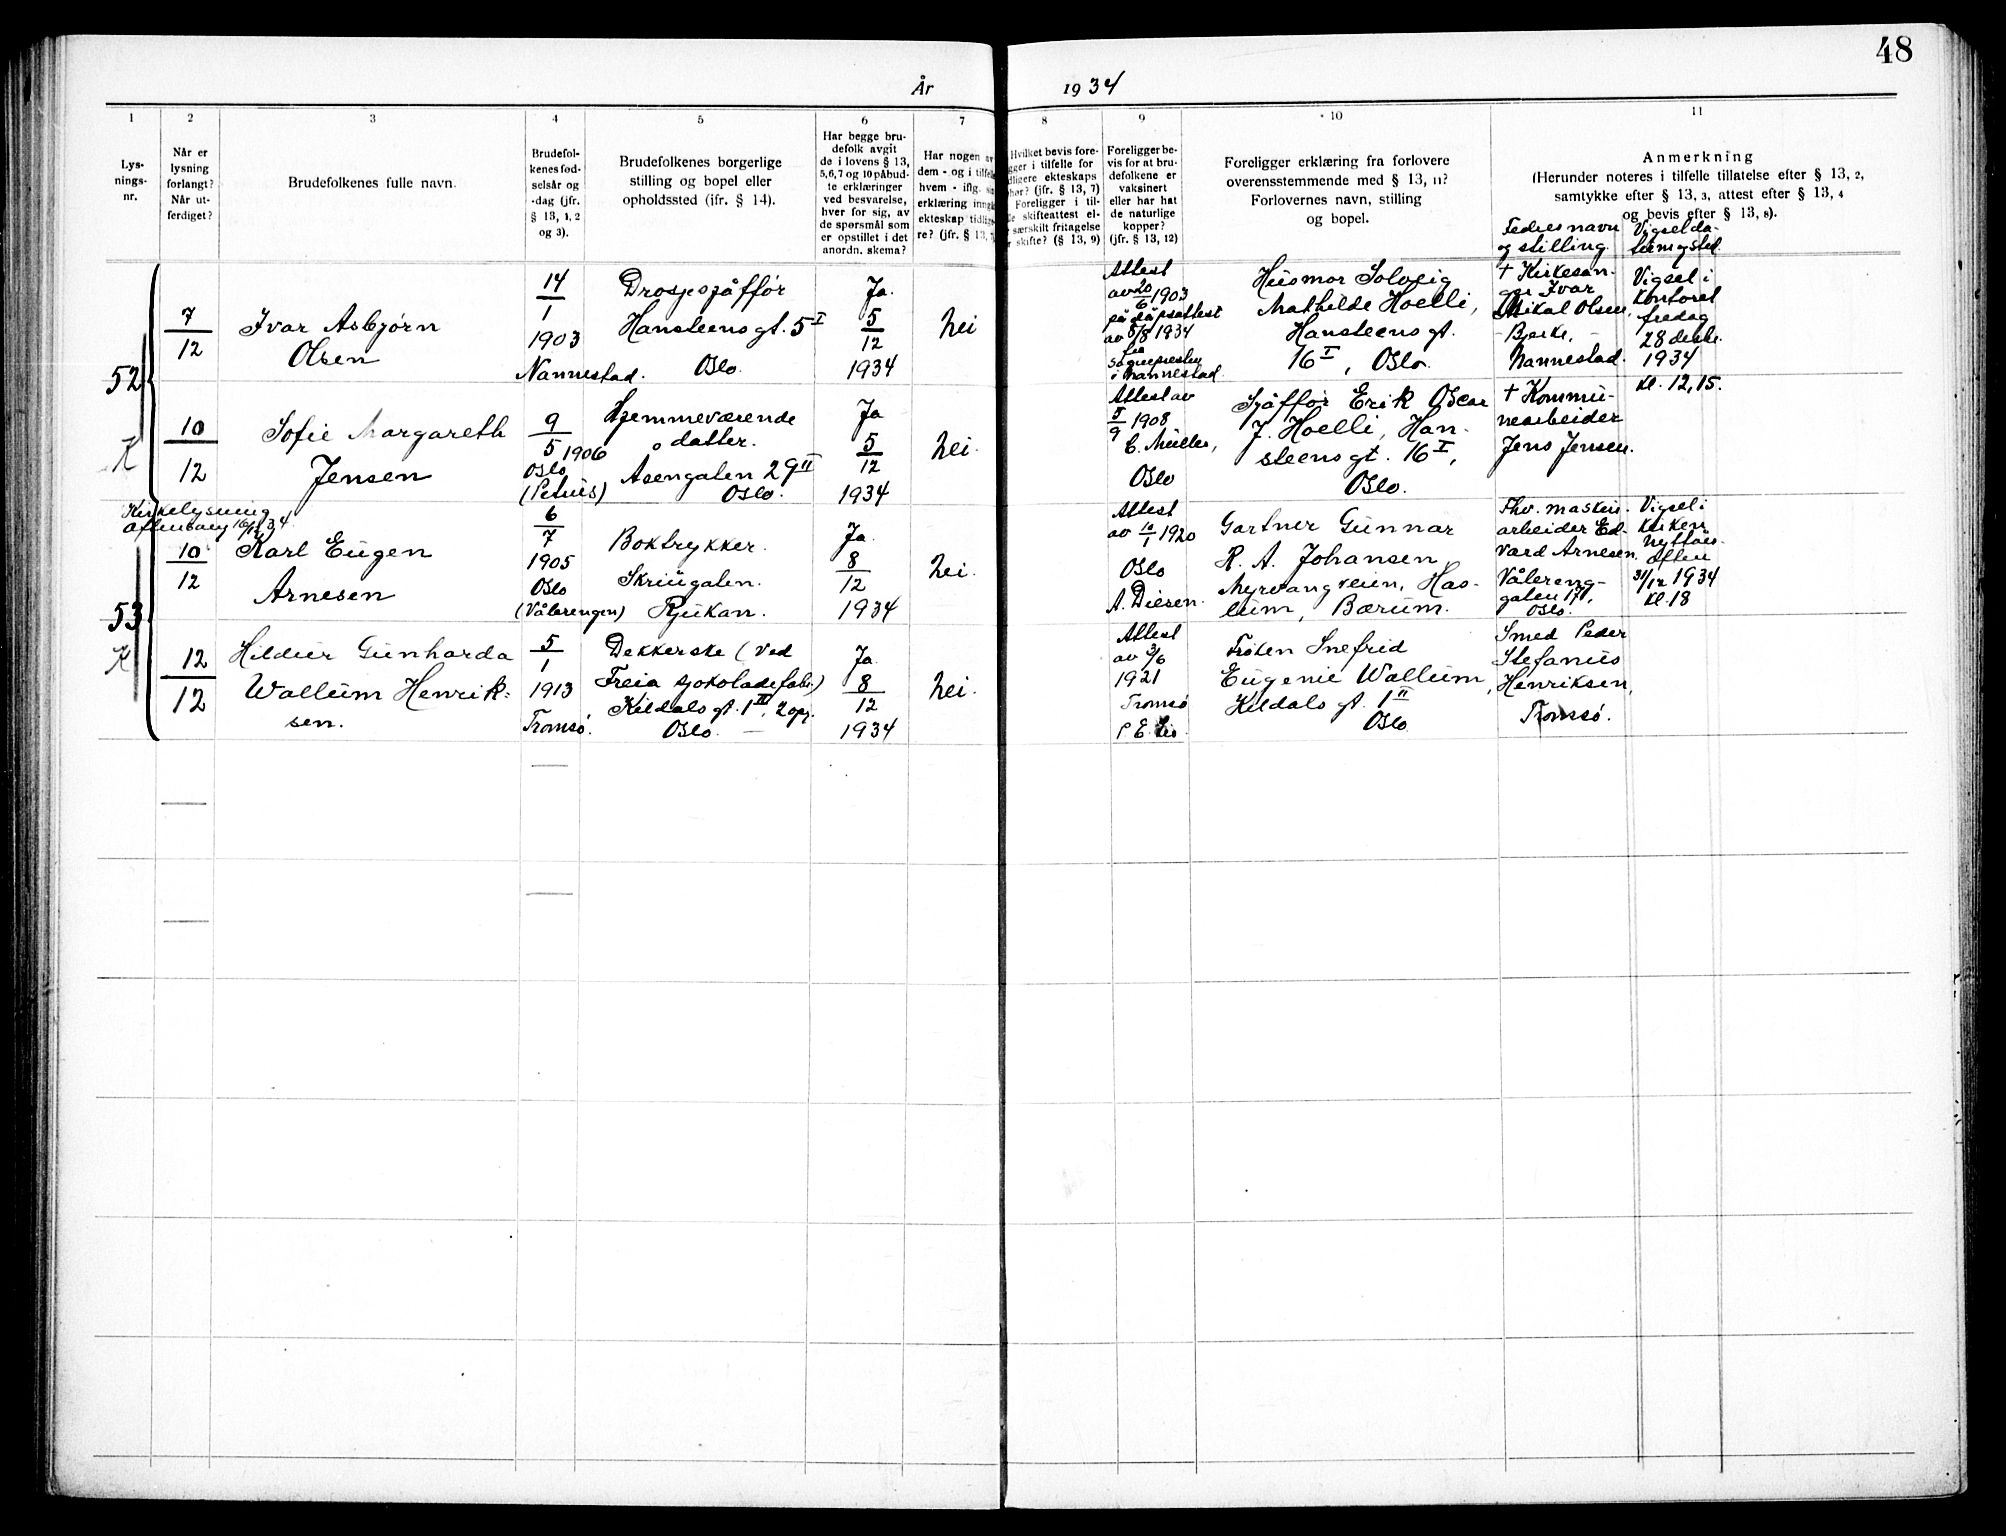 48
År 1934
1
2
3
4
5
6
7
8
9
10
11
Lys-
nings-
nr.
Når er
lysning
forlangt?
Når ut-
ferdiget?
Brudefolkenes fulle navn.
Brudefol-
kenes fød-
selsår og
-dag (jfr.
§ 13, 1, 2
og 3).
Brudefolkenes borgerlige
stilling og bopel eller
opholdssted (jfr. § 14).
Har begge bru-
defolk avgit
de i lovens § 13,
5,6,7 og 10 påbud-
te erklæringer
ved besvarelse,
hver for sig, av
de spørsmål som
er opstillet i det
anordn. skema?
Har nogen av
dem - og i tilfelle
hvem - iflg. sin
erklæring inngå
ekteskap tidlige-
re? (jfr. § 13, 7
Hvilket bevis fore-
gger i tilfelle for
dligere ekteskaps
phør? (jfr. § 13, 7)
Foreligger i til-
le skifteattest el-
særskilt fritagelse
r skifte? (§ 13, 9)
Foreligger be-
vis for at bru-
defolkene er
vaksinert
eller har hat
de naturlige
kopper?
(jfr. § 13, 12)
Foreligger erklæring fra forlovere
overensstemmende med § 13, 11?
Forlovernes navn, stilling
og bopel.
Anmerkning
(Herunder noteres i tilfelle tillatelse efter § 13, 2,
samtykke efter § 13, 3, attest efter § 13, 4
og bevis efter § 13, 8).
Fedres navn
og stilling.
Vigselda-
tum og sted.
52
K
7/12
Ivar Asbjørn
Olsen
14/1
1903
Nannestad.
Drosjesjåffør
Hansteensgt. 5 I
Oslo.
Ja.
5/12
1934
Nei
Attest
av 20/6 1903
på dåpsattest
av 8/8 1934
fra
sognepresten
i Nannestad.
Husmor Solveig
Mathilde Hoelli,
Hansteensgt.
16 I, Oslo.
+ Kirkesan-
ger Ivar
Mikal Olsen,
- Bjerke, -
Nannestad.
Vigsel i
kontoret
fredag
28 desbr.
1934
Kl. 12,15.
10/12
Sofie Margareth
Jensen
9/5 1906
Oslo
(Petrus)
Hjemmeværende
datter.
Åsengaten 29 II
Oslo.
Ja
5/12
1934
Nei.
Attest av
5/9 1908
C. Müller,
Oslo
Sjåffør Erik Oscar
J. Hoelli, Han-
steensgt. 16 I,
Oslo.
+ Kommu-
nearbeider
Jens Jensen.
Kirkelysning
Aftenbørg 16/12 34
53
K
10/12
Karl Eugen
Arnesen
6/7
1905
Oslo
(Vålerengen)
Boktrykker.
Skriugaten.
Rjukan.
Ja.
8/12
1934
Nei.
Attest
av 10/1 1920
Oslo
A. Diesen.
Gartner Gunnar
R. A. Johansen
Myrvangveien, Has-
lum, Bærum.
Fhv. maskin-
arbeider Ed-
vard Arnesen,
Vålereng-
gaten 171,
Oslo.
Vigsel i
kirken
Nyttårs-
aften
31/12 1934
Kl. 18
12/12
Hildur Gunharda
Wallum Henrik-
sen.
5/1
1913
Tromsø.
Dekkerske (ved
Freia sjokoladefabr.)
Kildals gt. 1 IV, 2 opg.
Oslo. —
Ja
8/12
1934
Nei.
Attest
av 3/6
1921
Tromsø
P E. Lie
Frøken Snefrid
Eugenie Wallum,
Kildals gt. 1 II
Oslo
Smed Peder
Stefanus
Henriksen,
Tromsø.